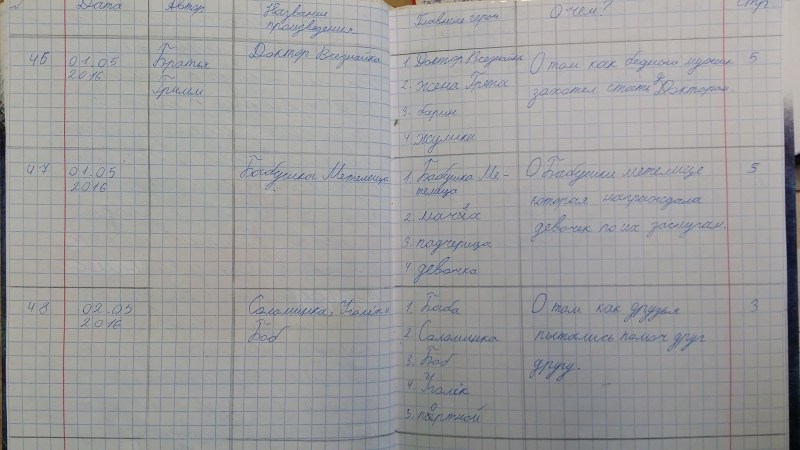 Дата Автор Название Главные герои О чём? Стр
произведения
46 01.05 Братья Доктор Всезнайка 1. Доктор Всезнайка О том как бедный мужик 5
2016 Гримм 2. Жена Грета захотел стать Доктором.
3. барин
4. жулики
47 01.05 Бабушка Метелица 1. Бабушка Ме- О Бабушки метелице 5
2016 телица которая награждала
2. мачеха девочек по их заслугам.
3. падчерица
4. девочка
48 02.05 Соломинка, Уголёк и 1. Баба О том как друзья 3
2016 Боб 2. Соломинка пытались помоч друг
3. Боб другу.
4. Уголёк
5. портной